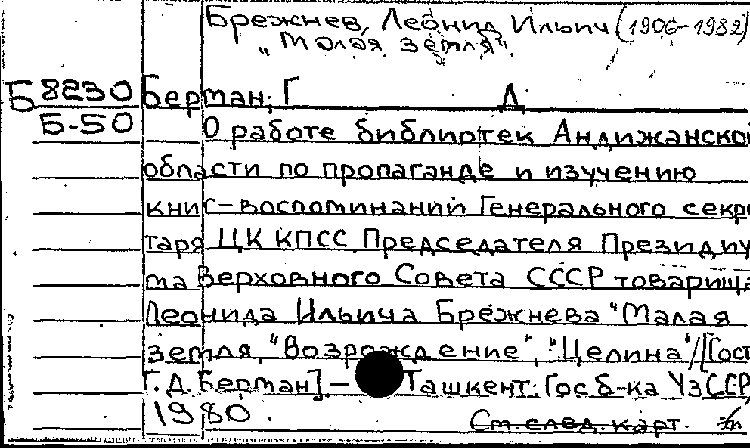 Брежнев, Леонид Ильич (1906-1982)
"Малая земля".
Б 8230 Берман, Г Д
Б-50 О работе библиотек Андижанской
области по пропаганде и изучению
книг-воспоминаний Генерального секре
таря ЦК КПСС Председателя Президиу
ма Верховного Совета СССР товарища
Леонида Ильича Брежнева "Малая
земля", "Возрождение", "Целина"/[Сост
Г. Д. Берман]. – Ташкент: Гос б-ка УзССР,
1980.
См. след. карт.